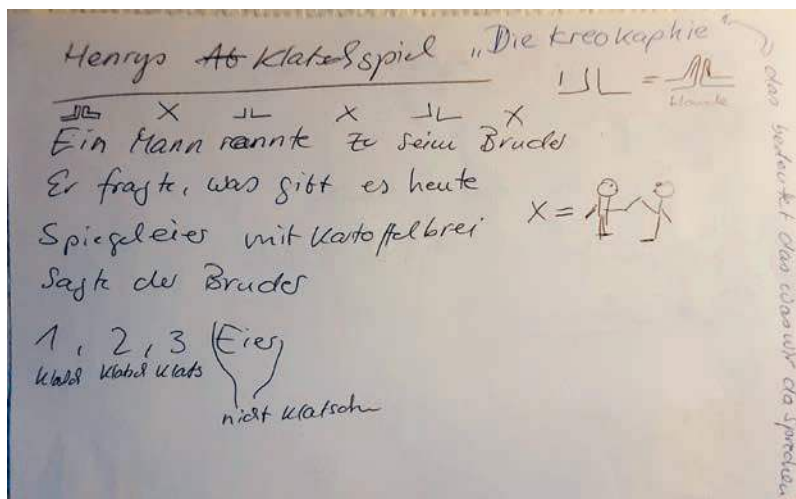 Henrys Ab Klatschspiel „Die Kreokaphie“
das bedeutet das was wir da sprechen
= Hände
X X X
Ein Mann rannte zu seim Bruder
Er fragte, was gibt es heute
X =
Spiegeleier mit Kartoffelbrei
Sagte der Bruder
1, 2, 3 (Eier)
Klatsch Klatsch Klatsch
nicht klatschen